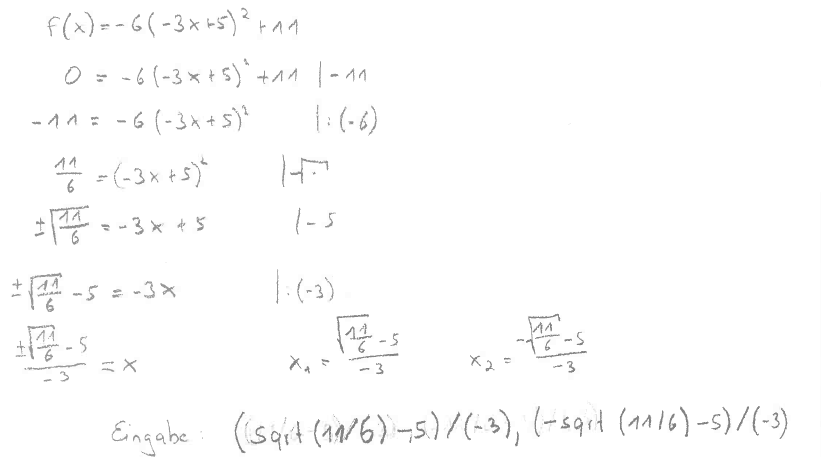 f(x)=-6(-3x+5)²+11
0 = -6(-3x+5)²+11 |-11
-11 = -6(-3x+5)² |:(-6)
11/6 = (-3x+5)² |√·
±√(11/6) = -3x+5 |-5
±√(11/6) -5 = -3x |:(-3)
(±√(11/6) -5)/(-3) = x x₁ = (√(11/6) -5)/(-3) x₂ = (-√(11/6) -5)/(-3)
Eingabe: ((sqrt(11/6)-5)/(-3), (-sqrt(11/6)-5)/(-3)